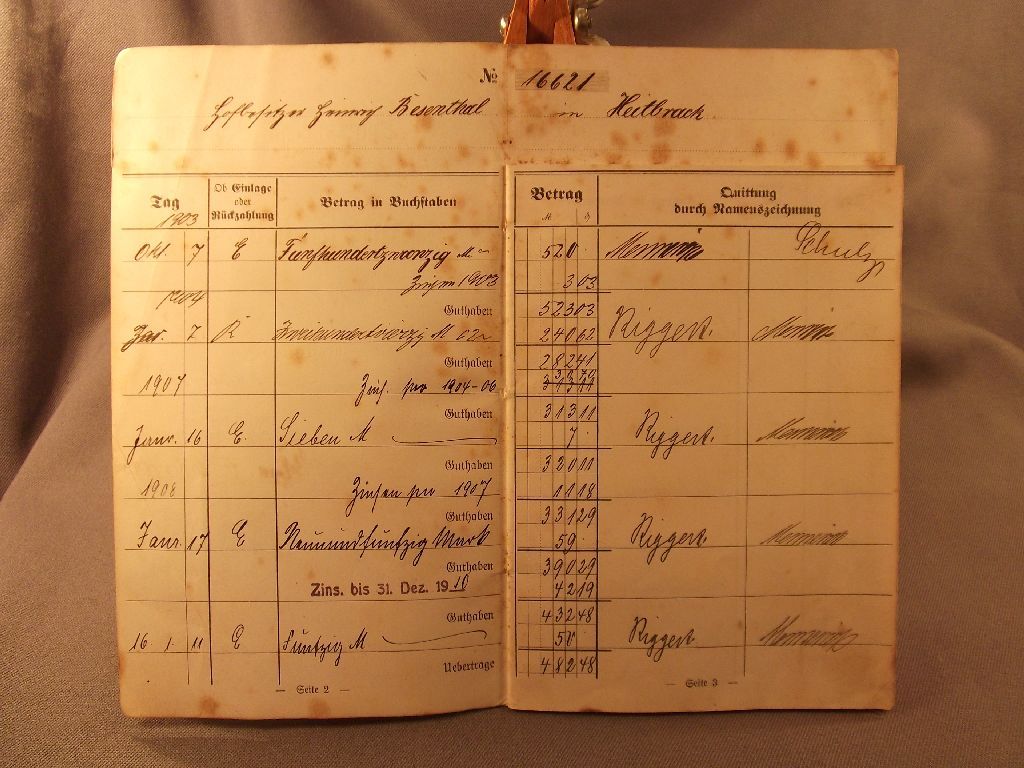 № 16621
Hofbesitzer Heinrich Besenthal in Heitbrack.
Tag Ob Einlage oder Rückzahlung Betrag in Buchstaben Betrag Quittung durch Namenszeichnung
1903 M ₰
Okt. 7 E Fünfhundertzwanzig M 520 Schulz
Zinsen 1903 3 03
1904 Guthaben 523 03
Jan. 7 R 240 62 Riggert.
Guthaben 282 41
1907 Zins. per 1904-06
Guthaben 313 11
Janr. 16 E. Sieben M 7 Riggert.
Guthaben 320 11
1908 Zinsen per 1907 11 18
Guthaben 331 29
Janr. 17 E Neunundfünfzig Mark 59 Riggert.
Guthaben 390 29
Zins. bis 31. Dez. 1910 42 19
Guthaben 432 48
16 1 11 E Fünfzig M 50 Riggert.
Uebertrage 482 48
— Seite 2 —
— Seite 3 —